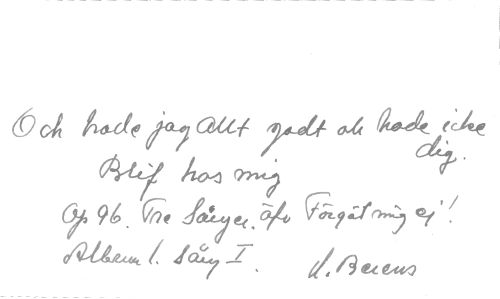 Och hade jag allt godt ock hade icke
dig.
Blif hos mig
Op 96. Tre Sånger. äfv Förgät mig ej!
Album 1. Sång I. H. Berens